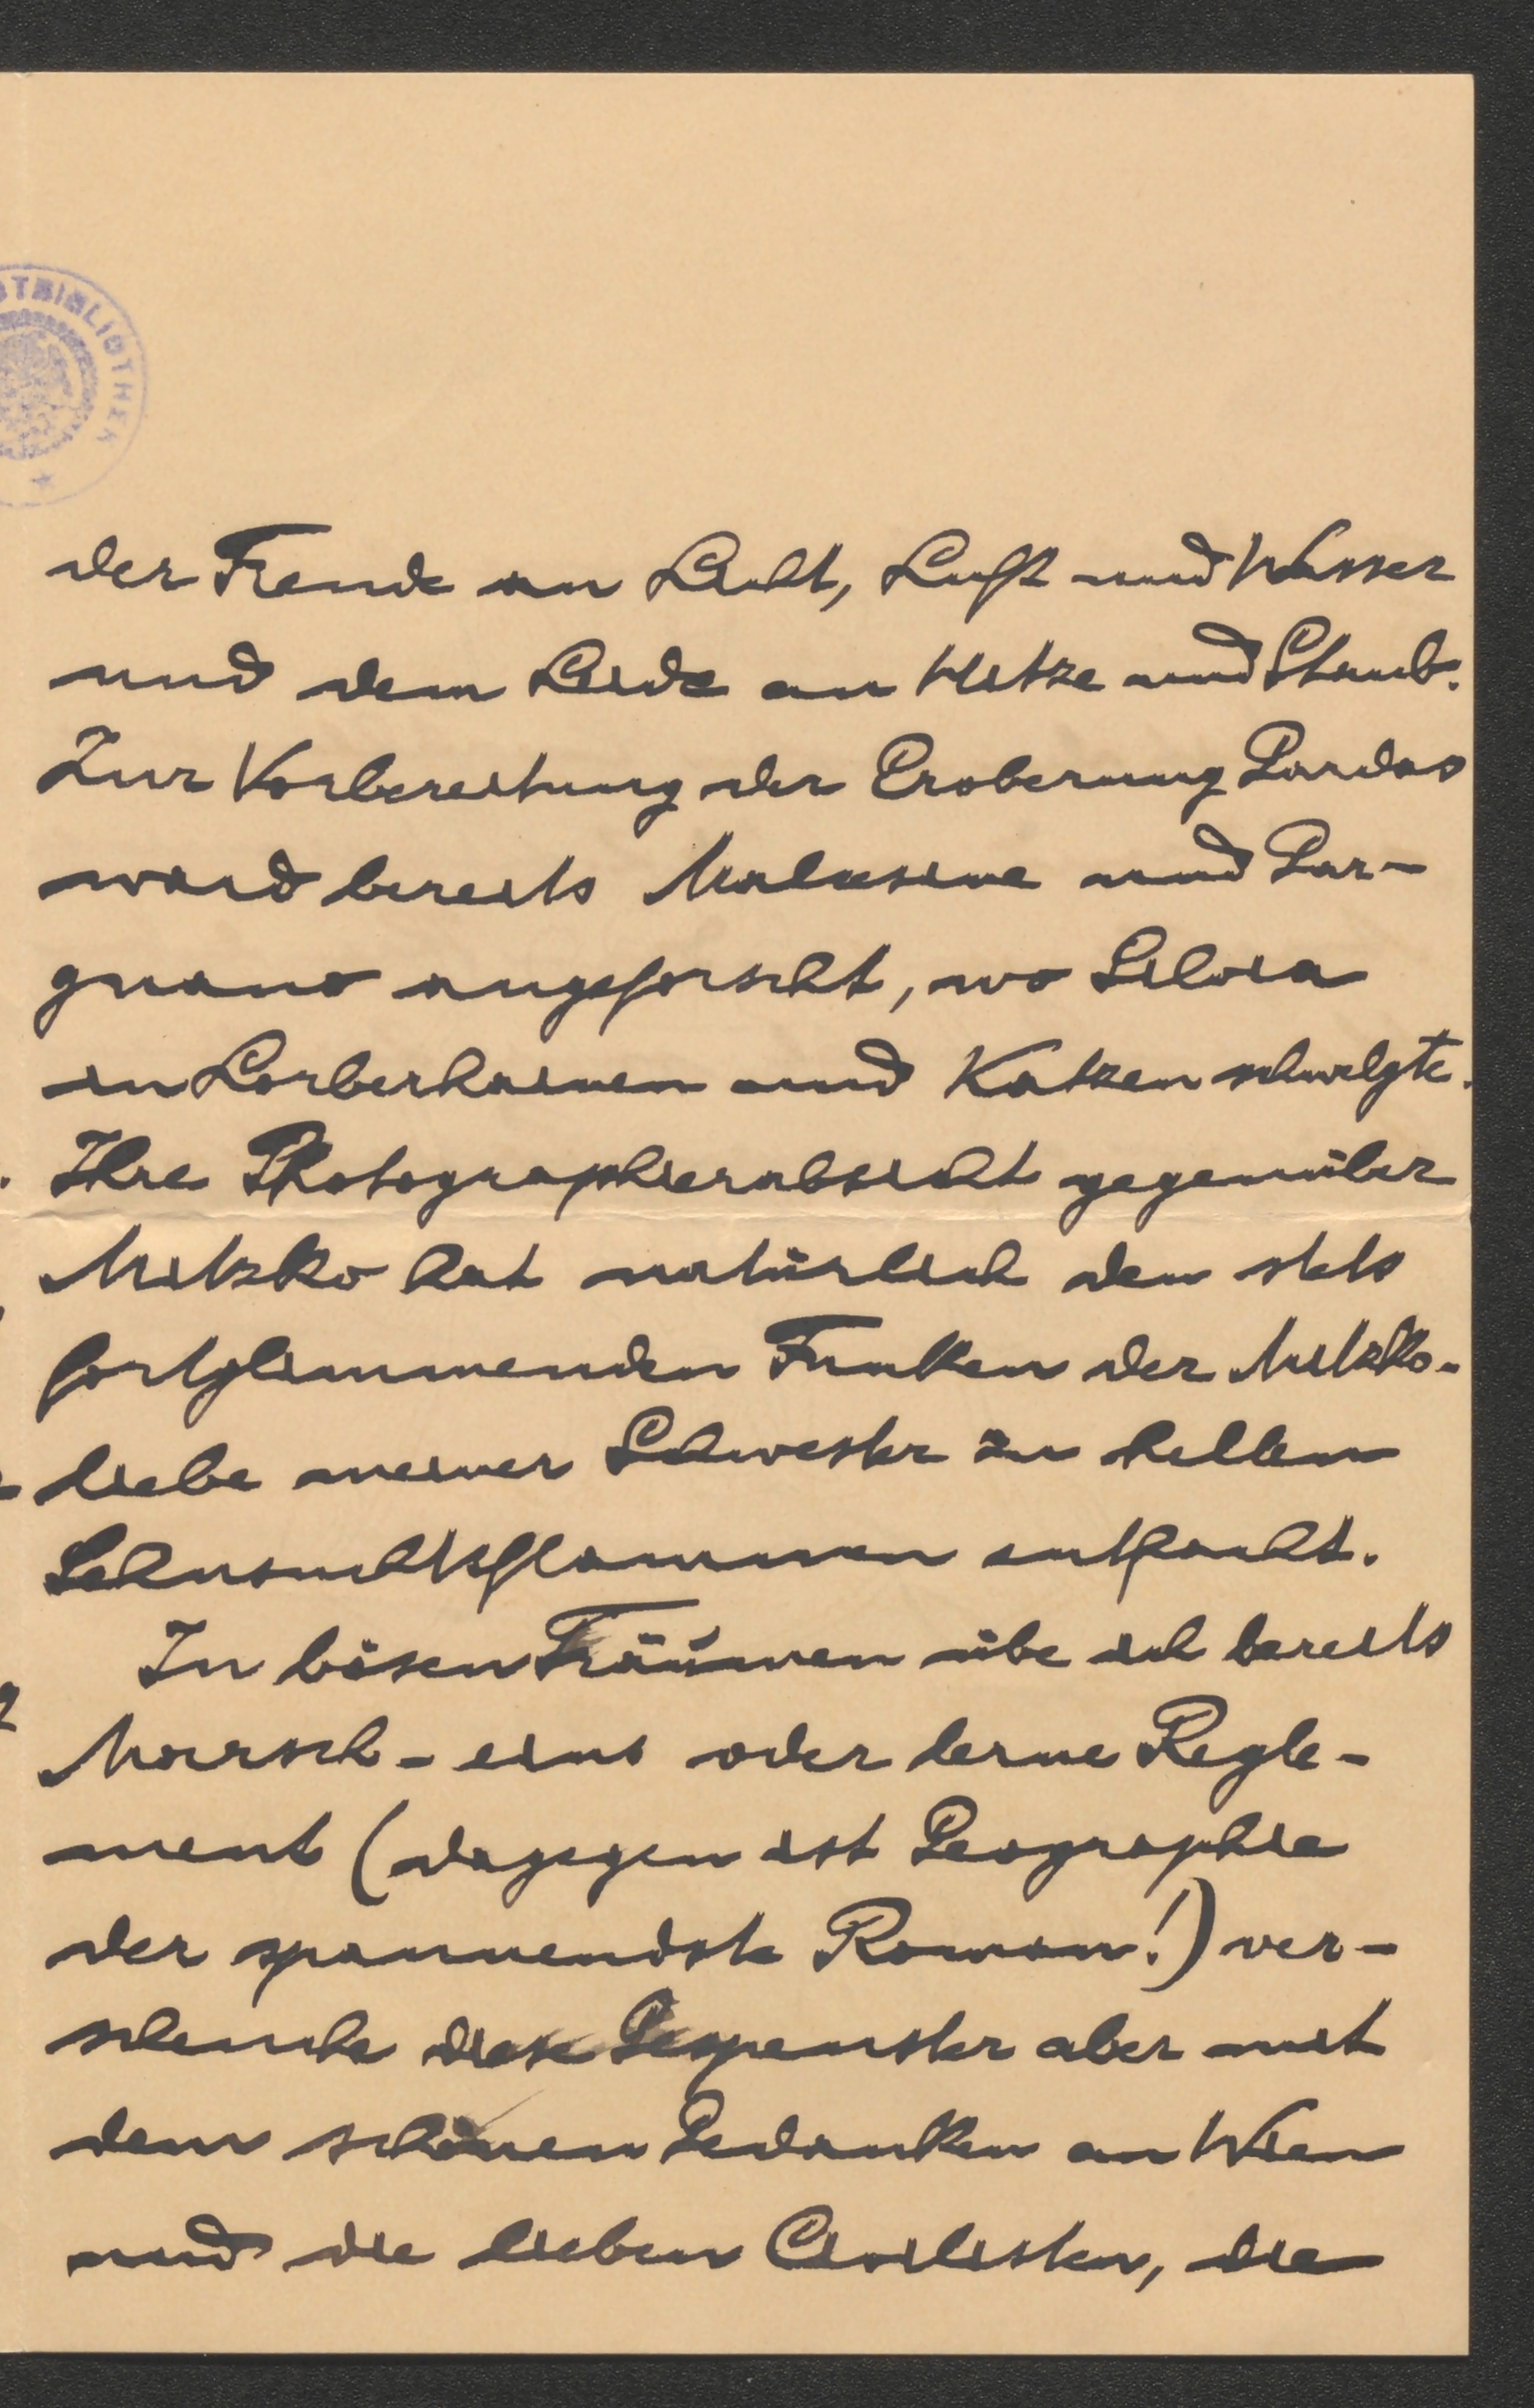 TBIBLIOTHEK
der Freude an Licht, Luft und Wasser
und dem Leide an Hitze und Staub.
Zur Vorbereitung der Eroberung Gardas
ward bereits Malcesine und Gar-
gnano angeforscht, wo Silvia
in Lorberhainen und Katzen schwelgte.
Ihre Photographierabsicht gegenüber
Mitzko hat natürlich den stets
fortglimmenden Funken der Mitzko-
liebe meiner Schwester zu hellen
Sehnsuchtsflammen entfacht.
In bösen Träumen übe ich bereits
Marsch-eins oder lerne Regle-
ment (dagegen ist Geographie
der spannendste Roman!) ver-
scheuche diese Gespenster aber mit
dem schönen Gedanken an Wien
und die lieben Civilisten, die